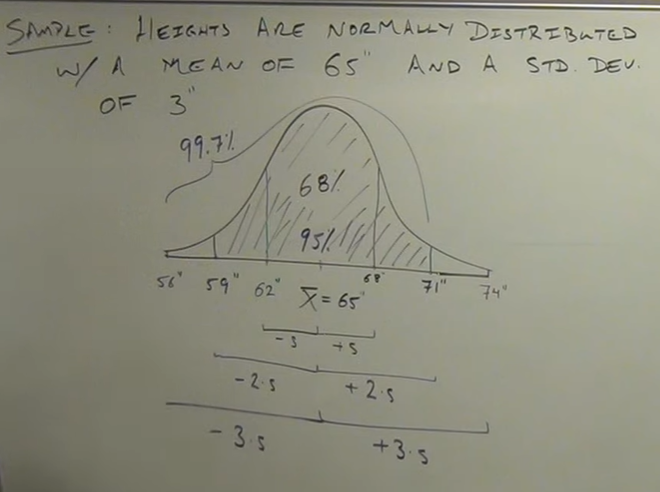 SAMPLE: HEIGHTS ARE NORMALLY DISTRIBUTED
W/ A MEAN OF 65" AND A STD. DEV.
OF 3"
99.7%
68%
95%
56" 59" 62" X̄ = 65" 68" 71" 74"
-s +s
-2·s +2·s
-3·s +3·s